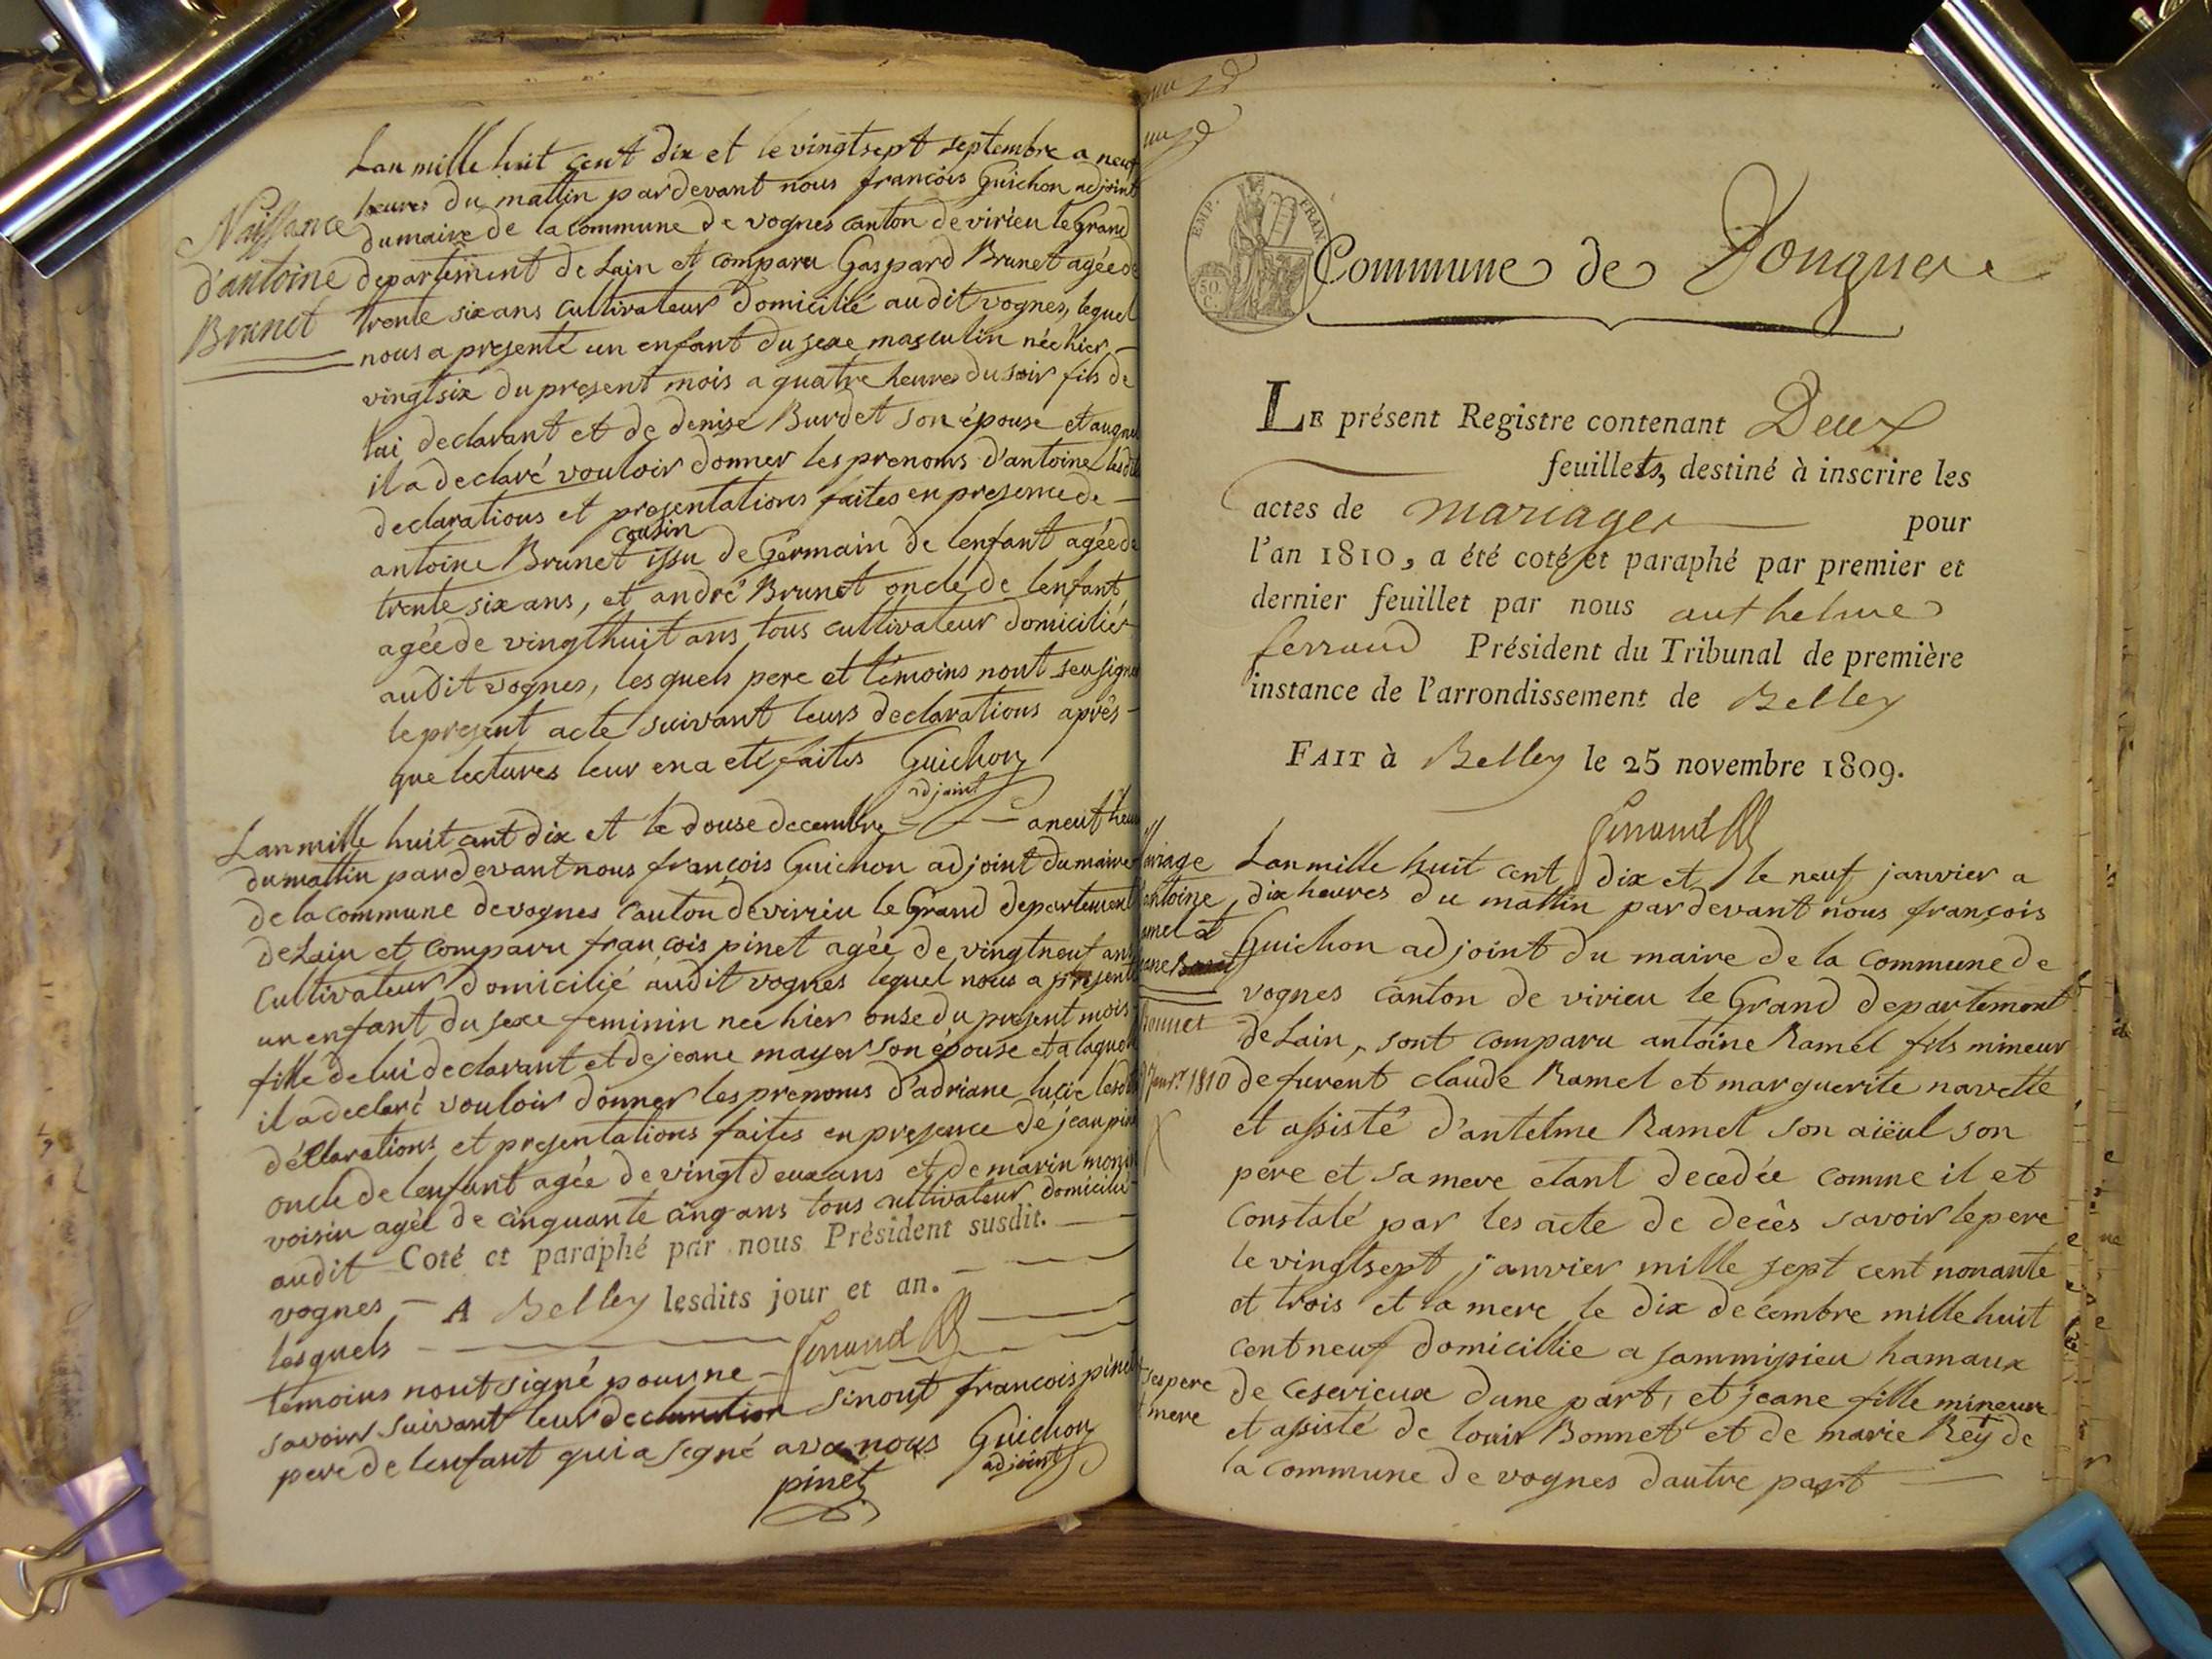 Naissance
d'antoine
Brunet
Lan mille huit cent dix et le vingtsept septembre a neuf
heures du mattin pardevant nous françois Guichon adjoint
dumaire de la commune de vognes canton de virieu le Grand
departement de Lain et comparu Gaspard Brunet agée de
trente six ans cultivateur domicilié audit vognes, lequel
nous a presenté un enfant du sexe masculin née hier
vingtsix du present mois a quatre heures du soir fils de
lui declarant et de denise Burdet son épouse et auquel
il a declaré vouloir donner les prenoms d'antoine lesdite
declarations et presentations faites en presence de
cousin
antoine Brunet issu de Germain de lenfant agée de
trente six ans, et andré Brunet oncle de lenfant
agée de vingthuit ans tous cultivateur domiciliés
audit vognes, les quels pere et témoins nont seu signé
le present acte suivant leurs declarations après
que lectures leur en a eté faites Guichon
adjoint
Lan mille huit cant dix et le douse decembre a neuf heur
du mattin pardevant nous françois Guichon adjoint du maire
de la commune de vognes canton de virieu le Grand departement
de Lain et comparu francois pinet agée de vingtneuf ans
cultivateur domicilié audit vognes lequel nous a presenté
un enfant du sexe feminin nee hier onse du present mois
fille de lui declarant et de jeane mayer son épouse et a laquel
il a declaré vouloir donner les prenoms d'adriane lucie lesd
déclarations et presentations faites en presence de jean pin
oncle de lenfant agée de vingtdeux ans et de marin
voisin agée de cinquante cinq ans tous cultivateur domicilié
audit Coté et paraphé par nous Président susdit.
vognes A Belley lesdits jour et an.
lesquels Ferrand
temoins nont signé pour ne
savoir suivant leur declaration sinont francois pinet
pere de lenfant qui a segné avec nous Guichon
adjoint
pinet
EMP. FRAN.
50 C.
Commune de Vongnes
LE présent Registre contenant Deux
feuillets, destiné à inscrire les
actes de mariages pour
l'an 1810, a été coté et paraphé par premier et
dernier feuillet par nous anthelme
ferrand Président du Tribunal de première
instance de l'arrondissement de Belley
FAIT à Belley le 25 novembre 1809.
Ferrand
ariage
antoine
amel et
Bonnet
9 Janr. 1810
Lan mille huit cent dix et le neuf janvier a
dix heures du mattin pardevant nous françois
Guichon adjoint du maire de la commune de
vognes canton de virieu le Grand departement
de Lain, sont comparu antoine Ramel fils mineur
de furent claude Ramel et marguerite navette
et assisté d'antelme Ramel son aiëul son
pere et sa mere etant decedée comme il et
constaté par les acte de decês savoir le pere
le vingtsept janvier mille sept cent nonante
et trois et la mere le dix decembre mille huit
cent neuf domicillie a sammipieu hamaux
de ceserieux dune part, et jeane fille mineure
ses pere
mere
et assisté de louis Bonnet et de marie Rey de
la commune de vognes dautre part